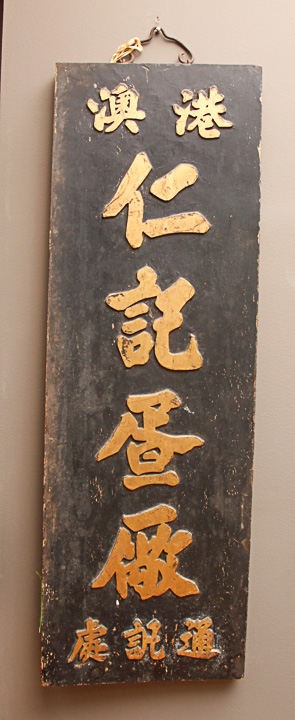 港澳
仁記疍厰
通訊處